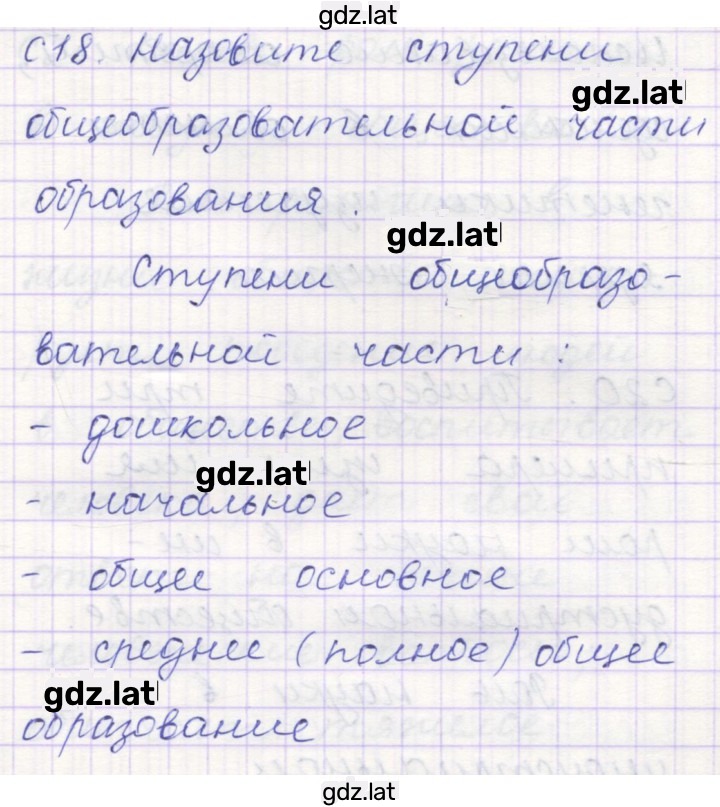 gdz.lat
С18. Назовите ступени
gdz.lat
общеобразовательной части
образования.
gdz.lat
Ступени общеобразо-
вательной части:
- дошкольное
gdz.lat
- начальное
- общее основное
- среднее (полное) общее
gdz.lat
образование
gdz.lat